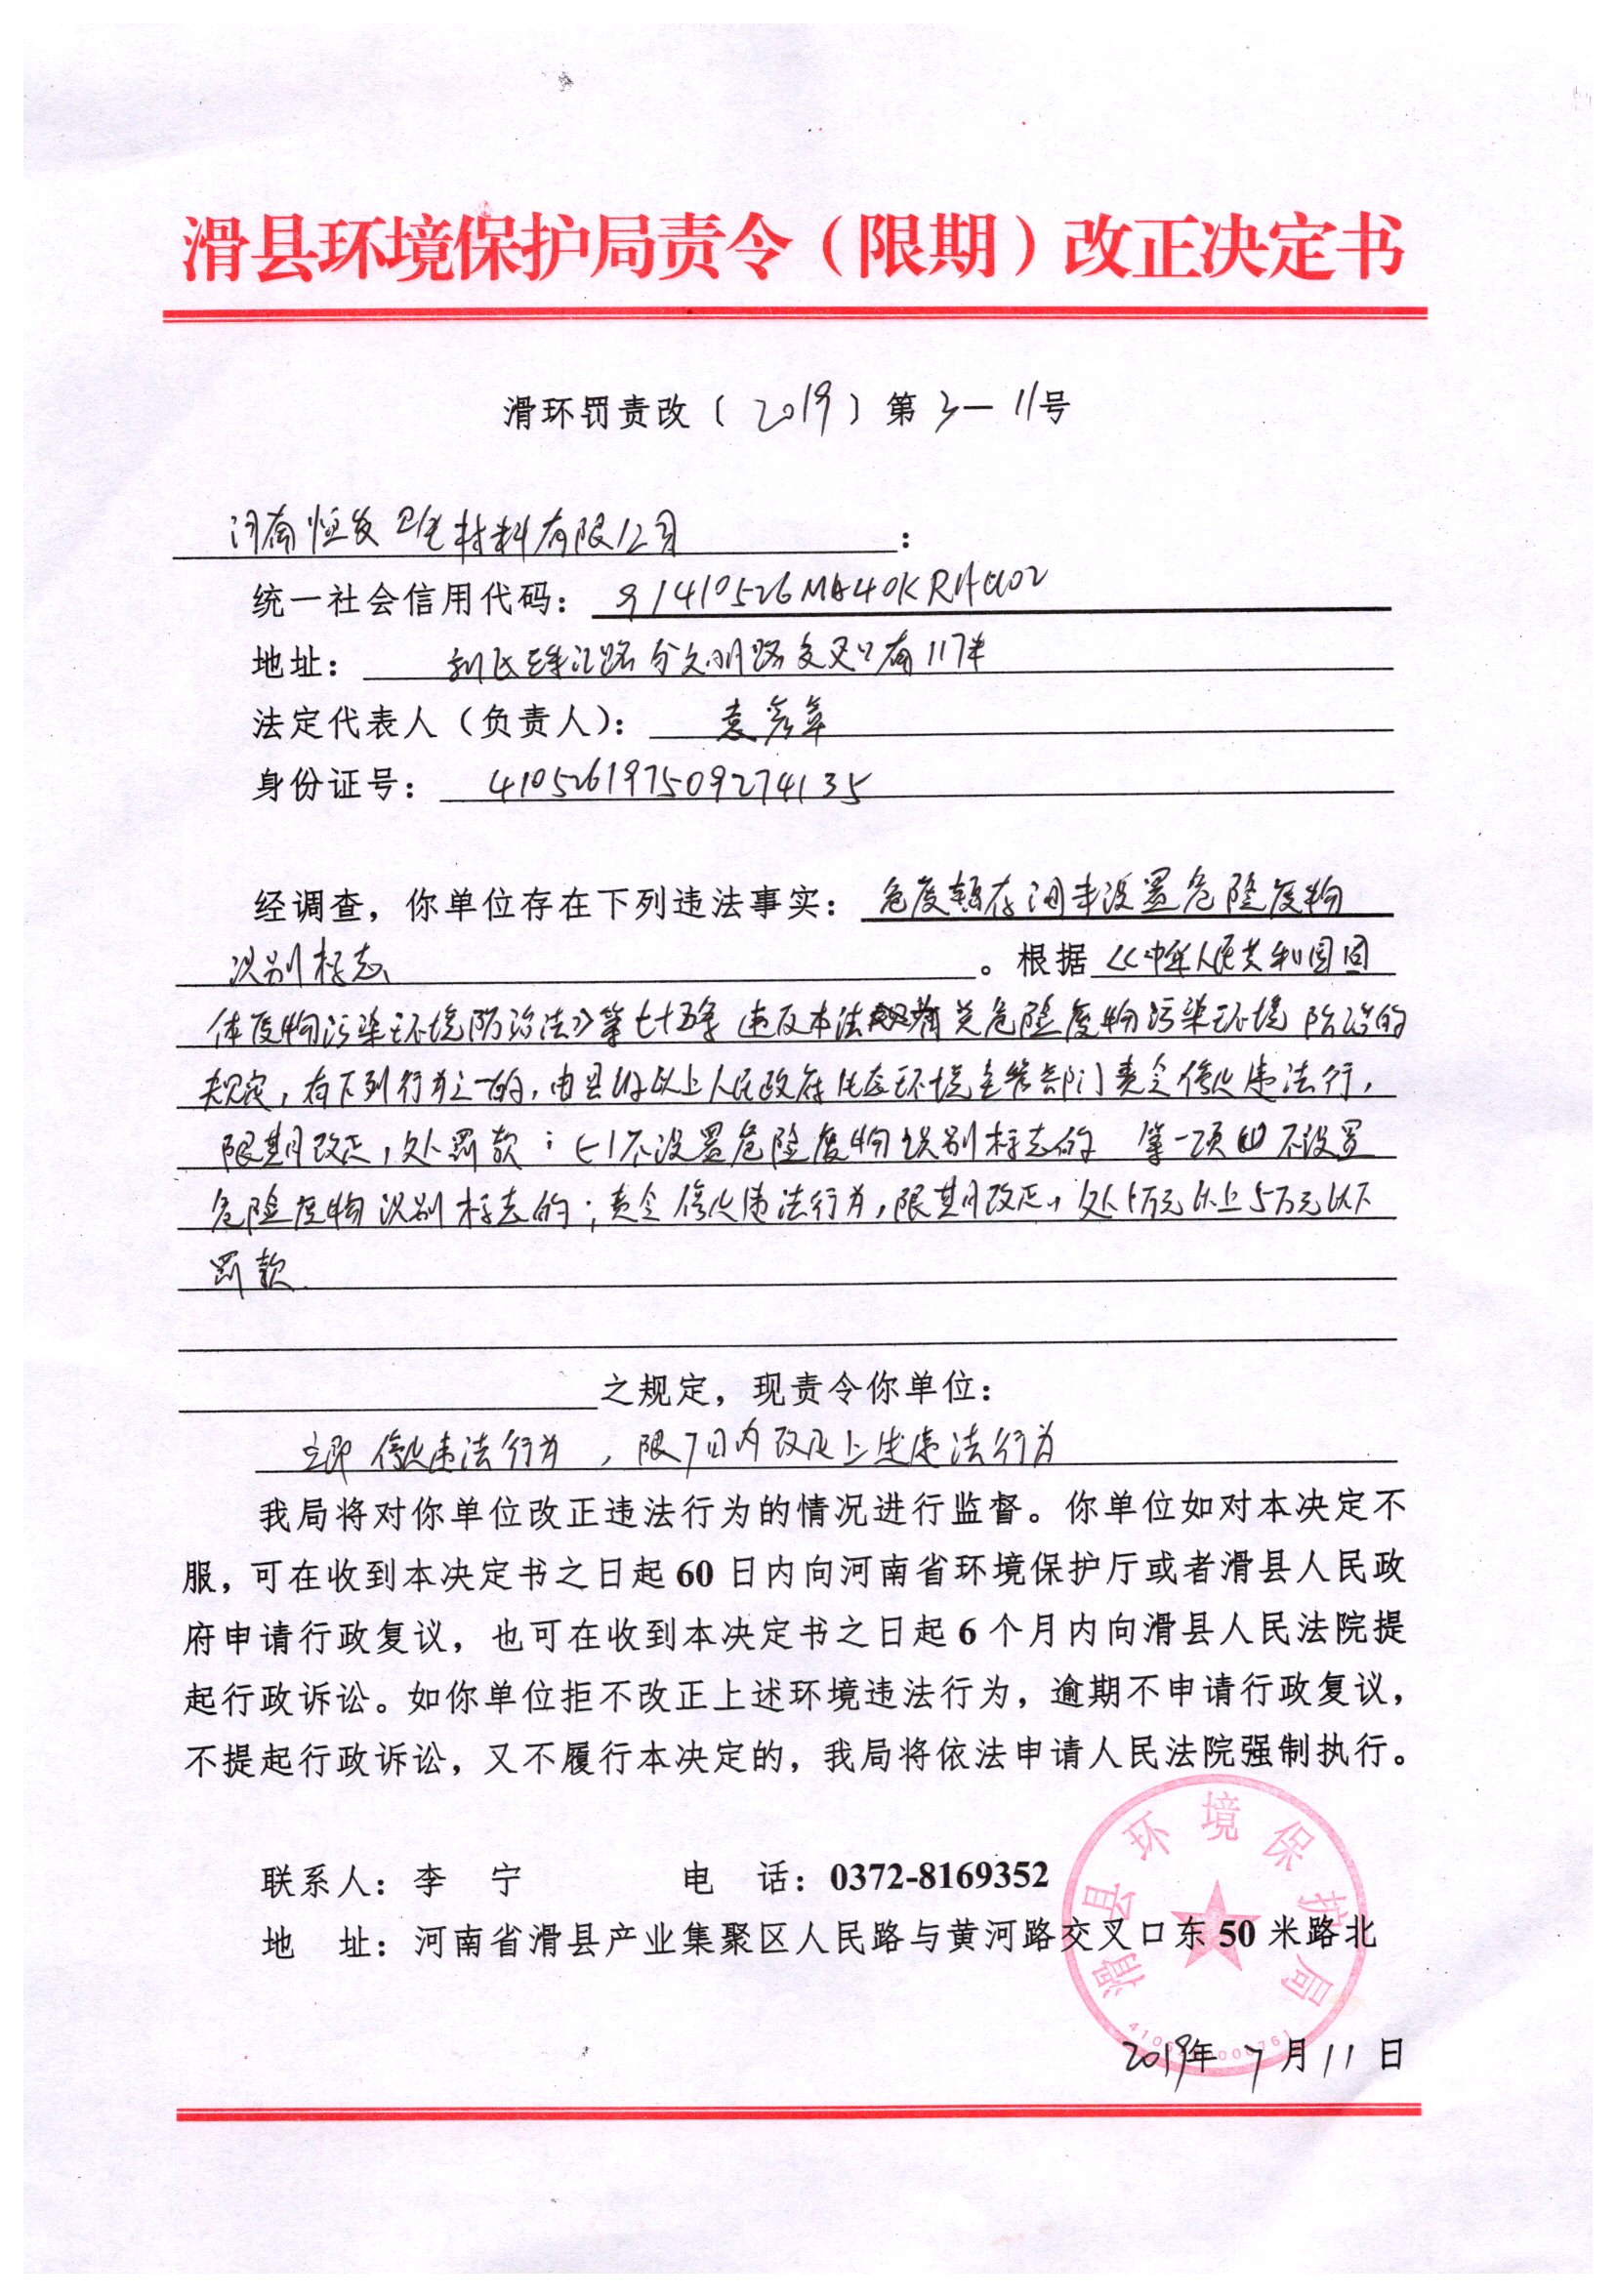 滑县环境保护局责令（限期）改正决定书
滑环罚责改〔2019〕第3—11号
河南恒发卫生材料有限公司：
统一社会信用代码：91410526MA40KRHU02
地址：新区珠江路与文明路交叉口南117米
法定代表人（负责人）：袁彦军
身份证号：410526197509274135
经调查，你单位存在下列违法事实：危废暂存间未设置危险废物
识别标志。根据《中华人民共和国固
体废物污染环境防治法》第七十五条 违反本法有关危险废物污染环境 防治的
规定，有下列行为之一的，由县级以上人民政府生态环境主管部门责令停止违法行，
限期改正，处罚款：（一）不设置危险废物识别标志的 第一项 不设置
危险废物识别标志的；责令停止违法行为，限期改正，处1万元以上5万元以下
罚款
之规定，现责令你单位：
立即停止违法行为，限7日内改正上述违法行为
我局将对你单位改正违法行为的情况进行监督。你单位如对本决定不
服，可在收到本决定书之日起60日内向河南省环境保护厅或者滑县人民政
府申请行政复议，也可在收到本决定书之日起6个月内向滑县人民法院提
起行政诉讼。如你单位拒不改正上述环境违法行为，逾期不申请行政复议，
不提起行政诉讼，又不履行本决定的，我局将依法申请人民法院强制执行。
联系人：李　宁　电　话：0372-8169352
地　址：河南省滑县产业集聚区人民路与黄河路交叉口东50米路北
滑县环境保护局
2019年7月11日